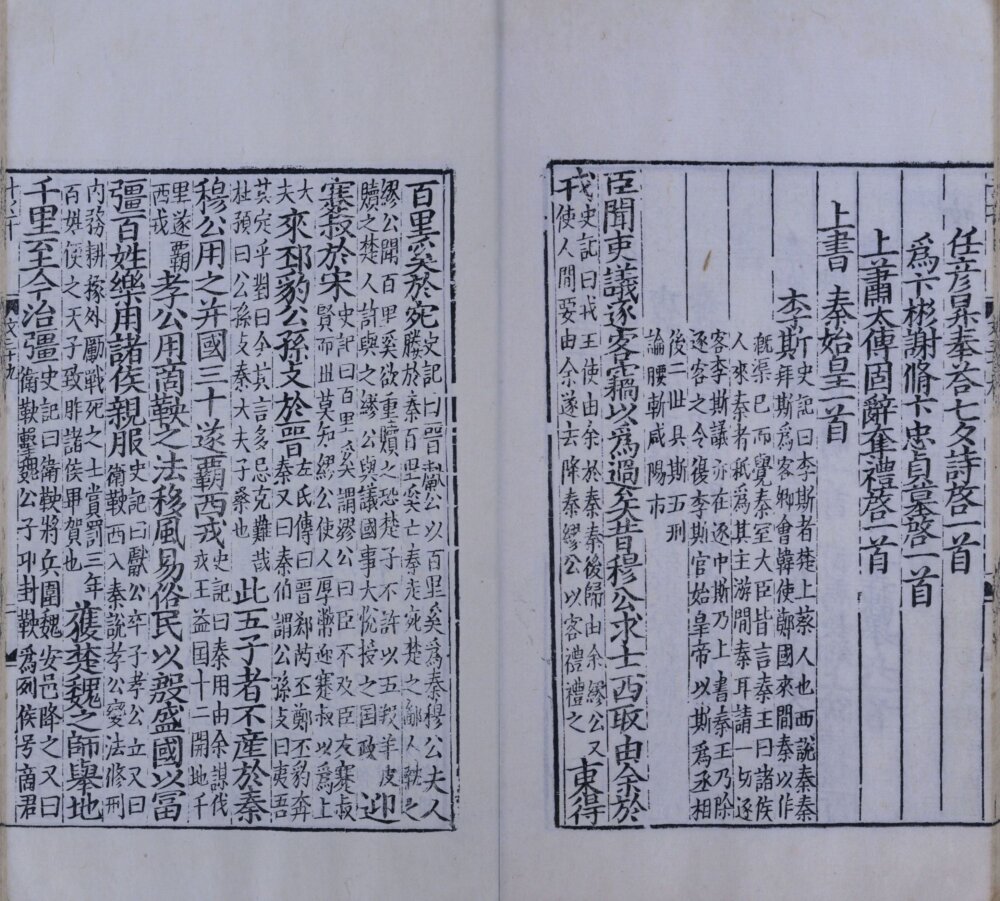 任彥昇奉荅七夕詩啓一首
爲卞彬謝脩卞忠貞墓啓一首
上蕭太傅固辭奪禮啓一首
上書 秦始皇一首
李斯 史記曰李斯者楚上蔡人也西說秦秦
拜斯爲客卿會韓使鄭國來間秦以作
漑渠已而覺秦室大臣皆言秦王曰諸侯
人來秦者秪爲其主游間秦耳請一切逐
客李斯議亦在逐中斯乃上書秦王乃除
逐客之令復李斯官始皇帝以斯爲丞相
後二世具斯五刑
論腰斬咸陽市
臣聞吏議逐客竊以爲過矣昔穆公求士西取由余於
戎 史記曰戎王使由余於秦秦後歸由余繆公又
使人間要由余遂去降秦繆公以客禮禮之 東得
百里奚於宛 史記曰晉獻公以百里奚爲秦穆公夫人
媵於秦百里奚亡秦走宛楚之鄙人執之
繆公聞百里奚欲重贖之恐楚子不許以五羖羊皮
贖之楚人許與之繆公與議國事大悅授之国政 迎
蹇叔於宋 史記曰百里奚謂繆公曰臣不及臣友蹇叔
賢而世莫知繆公使人厚幣迎蹇叔以爲上
大夫 來邳豹公孫支於晉 左氏傳曰晉郤芮丕鄭丕豹奔
秦又曰秦伯謂公孫支曰夷吾
其定乎對曰今其言多忌克難哉
杜預曰公孫支秦大夫子桑也 此五子者不產於秦
穆公用之并國三十遂霸西戎 史記曰秦用由余謀伐
戎王益国十二開地千
里遂霸西戎 孝公用商鞅之法移風易俗民以殷盛國以富
彊百姓樂用諸侯親服 史記曰獻公卒子孝公立又曰
衛鞅西入秦說孝公變法修刑
內務耕稼外勵戰死之士賞罰三年
百姓便之天子致胙諸侯畢賀也 獲楚魏之師舉地
千里至今治彊 史記曰衛鞅將兵圍魏安邑降之又曰
衛鞅擊魏公子卬封鞅爲列侯号商君